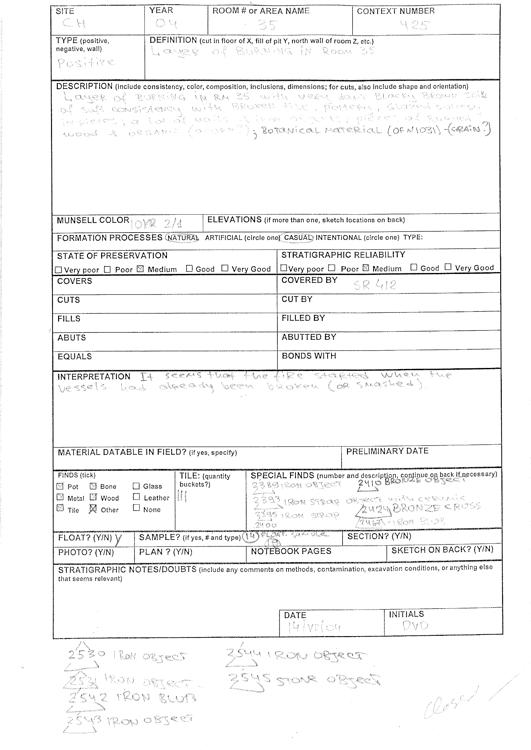 SITE YEAR ROOM # or AREA NAME CONTEXT NUMBER
CH 04 35 425
TYPE (positive, negative, wall) DEFINITION (cut in floor of X, fill of pit Y, north wall of room Z, etc.)
Positive Layer of BURNING IN Room 35
DESCRIPTION (include consistency, color, composition, inclusions, dimensions; for cuts, also include shape and orientation)
Layer of BURNING IN RM 35 with very dark Blacky Brown soil
of soft consistency with BROKEN tile, pottery,
in pieces, a lot of nails + iron objects, pieces of Burned
wood + organic ; BOTANICAL MATERIAL (OF N1031) - (GRAIN?)
MUNSELL COLOR 10YR 2/1 ELEVATIONS (if more than one, sketch locations on back)
FORMATION PROCESSES NATURAL ARTIFICIAL (circle one) CASUAL INTENTIONAL (circle one) TYPE:
STATE OF PRESERVATION STRATIGRAPHIC RELIABILITY
Very poor Poor Medium Good Very Good Very poor Poor Medium Good Very Good
COVERS COVERED BY SR 412
CUTS CUT BY
FILLS FILLED BY
ABUTS ABUTTED BY
EQUALS BONDS WITH
INTERPRETATION It seems that the fire started when the
vessels had already been broken (or smashed)
MATERIAL DATABLE IN FIELD? (if yes, specify) PRELIMINARY DATE
FINDS (tick) TILE: (quantity buckets?) SPECIAL FINDS (number and description, continue on back if necessary)
Pot Bone Glass
Metal Wood Leather
Tile Other None
2389 IRON OBJECT 2410 BRONZE OBJECT
2393 IRON STRAP OBJECT with ceramic
2395 IRON STRAP 2424 BRONZE CROSS
2400 IRON BLUB
FLOAT? (Y/N) Y SAMPLE? (if yes, # and type) 14 FLOAT. sample SECTION? (Y/N)
PHOTO? (Y/N) PLAN ? (Y/N) NOTEBOOK PAGES SKETCH ON BACK? (Y/N)
STRATIGRAPHIC NOTES/DOUBTS (include any comments on methods, contamination, excavation conditions, or anything else
that seems relevant)
DATE INITIALS
14/VI/04 DVD
2530 IRON OBJECT 2544 IRON OBJECT
2531 IRON OBJECT 2545 STONE OBJECT
2542 IRON BLUB
2543 IRON OBJECT
Closed